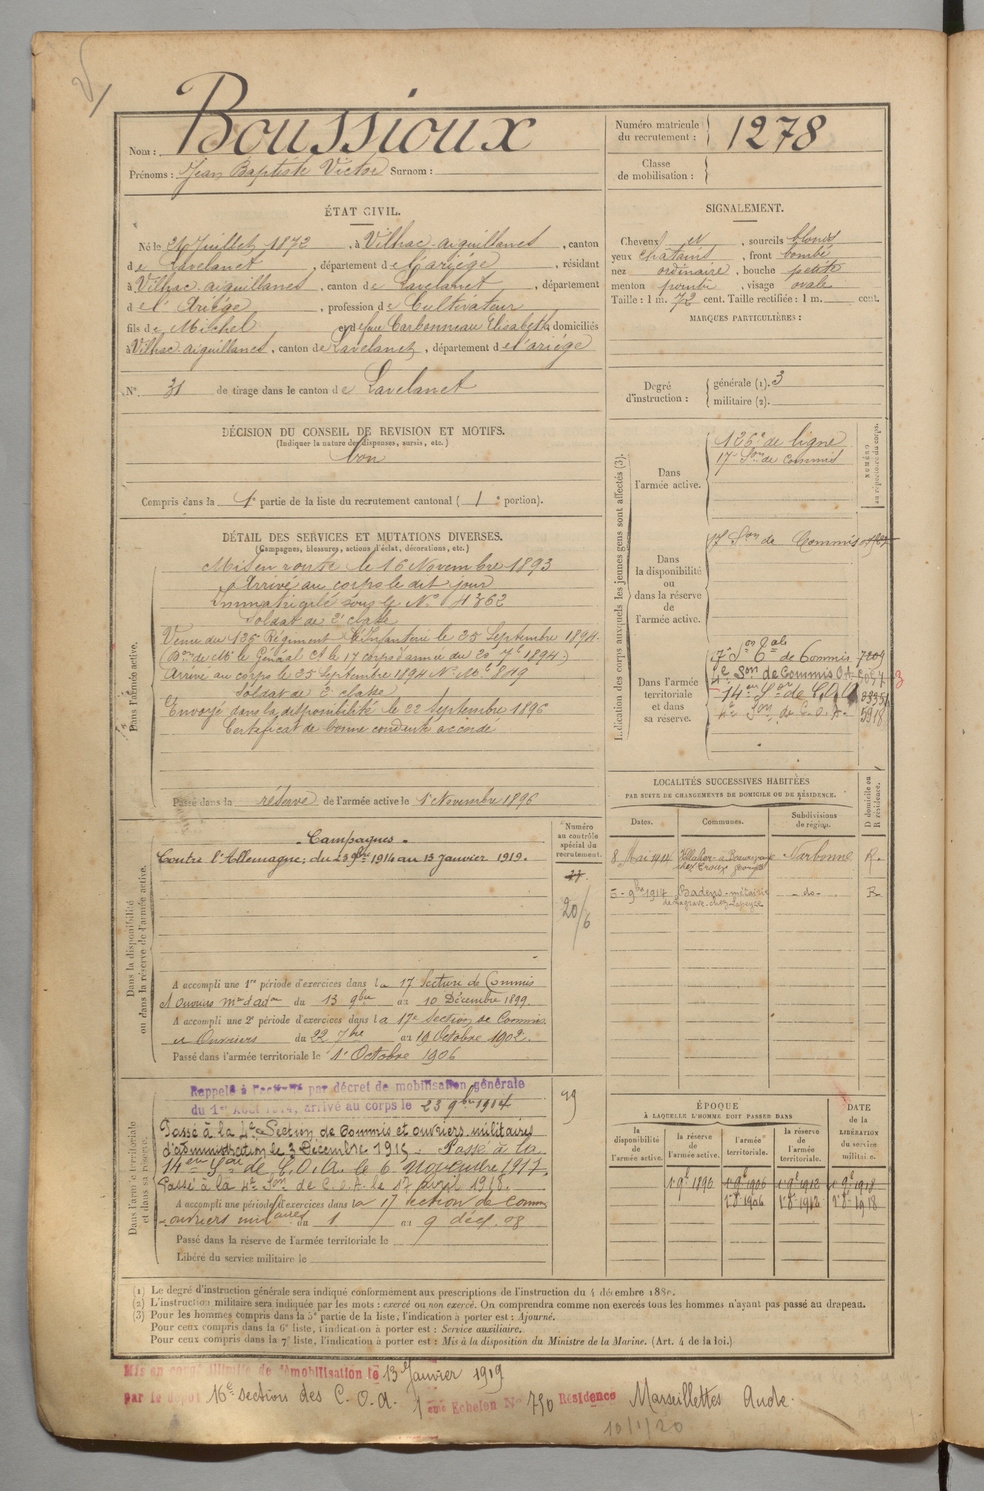 Nom : Boussioux
Prénoms : Jean Baptiste Victor Surnom :
Numéro matricule du recrutement : 1278
Classe de mobilisation :
ÉTAT CIVIL.
Né le 24 Juillet 1872, à Vilhac-aiguillanes, canton
de Lavelanet, département de l'ariège, résidant
à Vilhac-aiguillanes, canton de Lavelanet, département
de l'Ariège, profession de Cultivateur
fils de Michel et de feue Carbonneau Elisabeth, domiciliés
à Vilhac-aiguillanes, canton de Lavelanet, département de l'ariège
N° 31 de tirage dans le canton de Lavelanet
DÉCISION DU CONSEIL DE REVISION ET MOTIFS.
(Indiquer la nature des dispenses, sursis, etc.)
bon
Compris dans la 1e partie de la liste du recrutement cantonal ( 1e portion).
SIGNALEMENT.
Cheveux et, sourcils blonds
yeux châtains, front bombé
nez ordinaire, bouche petite
menton pointu, visage ovale
Taille : 1 m. 72 cent. Taille rectifiée : 1 m. cent.
MARQUES PARTICULIÈRES :
Degré d'instruction : générale (1). 3
militaire (2).
DÉTAIL DES SERVICES ET MUTATIONS DIVERSES.
(Campagnes, blessures, actions d'éclat, décorations, etc.)
Dans l'armée active.
Mis en route le 16 Novembre 1893
Arrivé au corps le dit jour
Immatriculé sous le N° 4362
Soldat de 2e classe
Venu du 126 Régiment d'Infanterie le 25 Septembre 1894.
(Don de Mr le Général Ct le 17 corps d'armée du 20 7bre 1894.)
Arrivé au corps le 25 Septembre 1894 N° Mle 849
Soldat de 2e classe
Envoyé dans la disponibilité le 22 Septembre 1896
Certificat de bonne conduite accordé
Passé dans la réserve de l'armée active le 1er Novembre 1896
Indication des corps auxquels les jeunes gens sont affectés (3).
NUMÉRO au répertoire du corps.
Dans l'armée active.
126e de ligne
17e Son de Commis
Dans la disponibilité ou dans la réserve de l'armée active.
17 Son de Commis
Dans l'armée territoriale et dans sa réserve.
17e Son Tale de Commis 7209
4e Son de Commis O.A.
14e Son de C.O.A. 3335
4e Son de C.O.A. 5918
LOCALITÉS SUCCESSIVES HABITÉES
PAR SUITE DE CHANGEMENTS DE DOMICILE OU DE RÉSIDENCE.
D domicile ou R résidence.
Dates. Communes. Subdivisions de région.
8 Mai 1914 Narbonne R.
5-9bre 1917 Badens - métairie -do- R
Dans la disponibilité ou dans la réserve de l'armée active.
Numéro au contrôle spécial du recrutement.
20/6
Campagnes
Contre l'Allemagne; du 23 9bre 1914 au 13 Janvier 1919.
A accompli une 1re période d'exercices dans la 17 Section de Commis
et Ouvriers mres d'adon du 13 9bre au 10 Décembre 1899.
A accompli une 2e période d'exercices dans la 17e Section de Commis
et Ouvriers du 22 7bre au 19 Octobre 1902.
Passé dans l'armée territoriale le 1er Octobre 1906
Dans l'armée territoriale et dans sa réserve.
Rappelé à l'activité par décret de mobilisation générale
du 1er Août 1914, arrivé au corps le 23 9bre 1914
Passé à la 4e Section de Commis et ouvriers militaires
d'administration le 3 Décembre 1915. Passé à la
14eme Son de C.O.A. le 6 Novembre 1917.
Passé à la 4e Son de C.O.A. le 17 avril 1918.
A accompli une période d'exercices dans la 17 section de Comm
ouvriers militaires du 1 au 9 déc. 08
Passé dans la réserve de l'armée territoriale le
Libéré du service militaire le
ÉPOQUE
À LAQUELLE L'HOMME DOIT PASSER DANS
DATE DE LA LIBÉRATION du service militaire.
la disponibilité de l'armée active. la réserve de l'armée active. l'armée territoriale. la réserve de l'armée territoriale.
1 9e 1896 1 9e 1906 1 9e 1912 1 9e 1918
1 8e 1906 1 8e 1912 1 8e 1918
(1) Le degré d'instruction générale sera indiqué conformément aux prescriptions de l'instruction du 4 décembre 1889.
(2) L'instruction militaire sera indiquée par les mots : exercé ou non exercé. On comprendra comme non exercés tous les hommes n'ayant pas passé au drapeau.
(3) Pour les hommes compris dans la 5e partie de la liste, l'indication à porter est : Ajourné.
Pour ceux compris dans la 6e liste, l'indication à porter est : Service auxiliaire.
Pour ceux compris dans la 7e liste, l'indication à porter est : Mis à la disposition du Ministre de la Marine. (Art. 4 de la loi.)
Mis en congé illimité de démobilisation le 13 Janvier 1919
par le dépôt 16e section des C.O.A. 1eme Echelon N° 750 Résidence Marseillettes Aude.
10/1/20